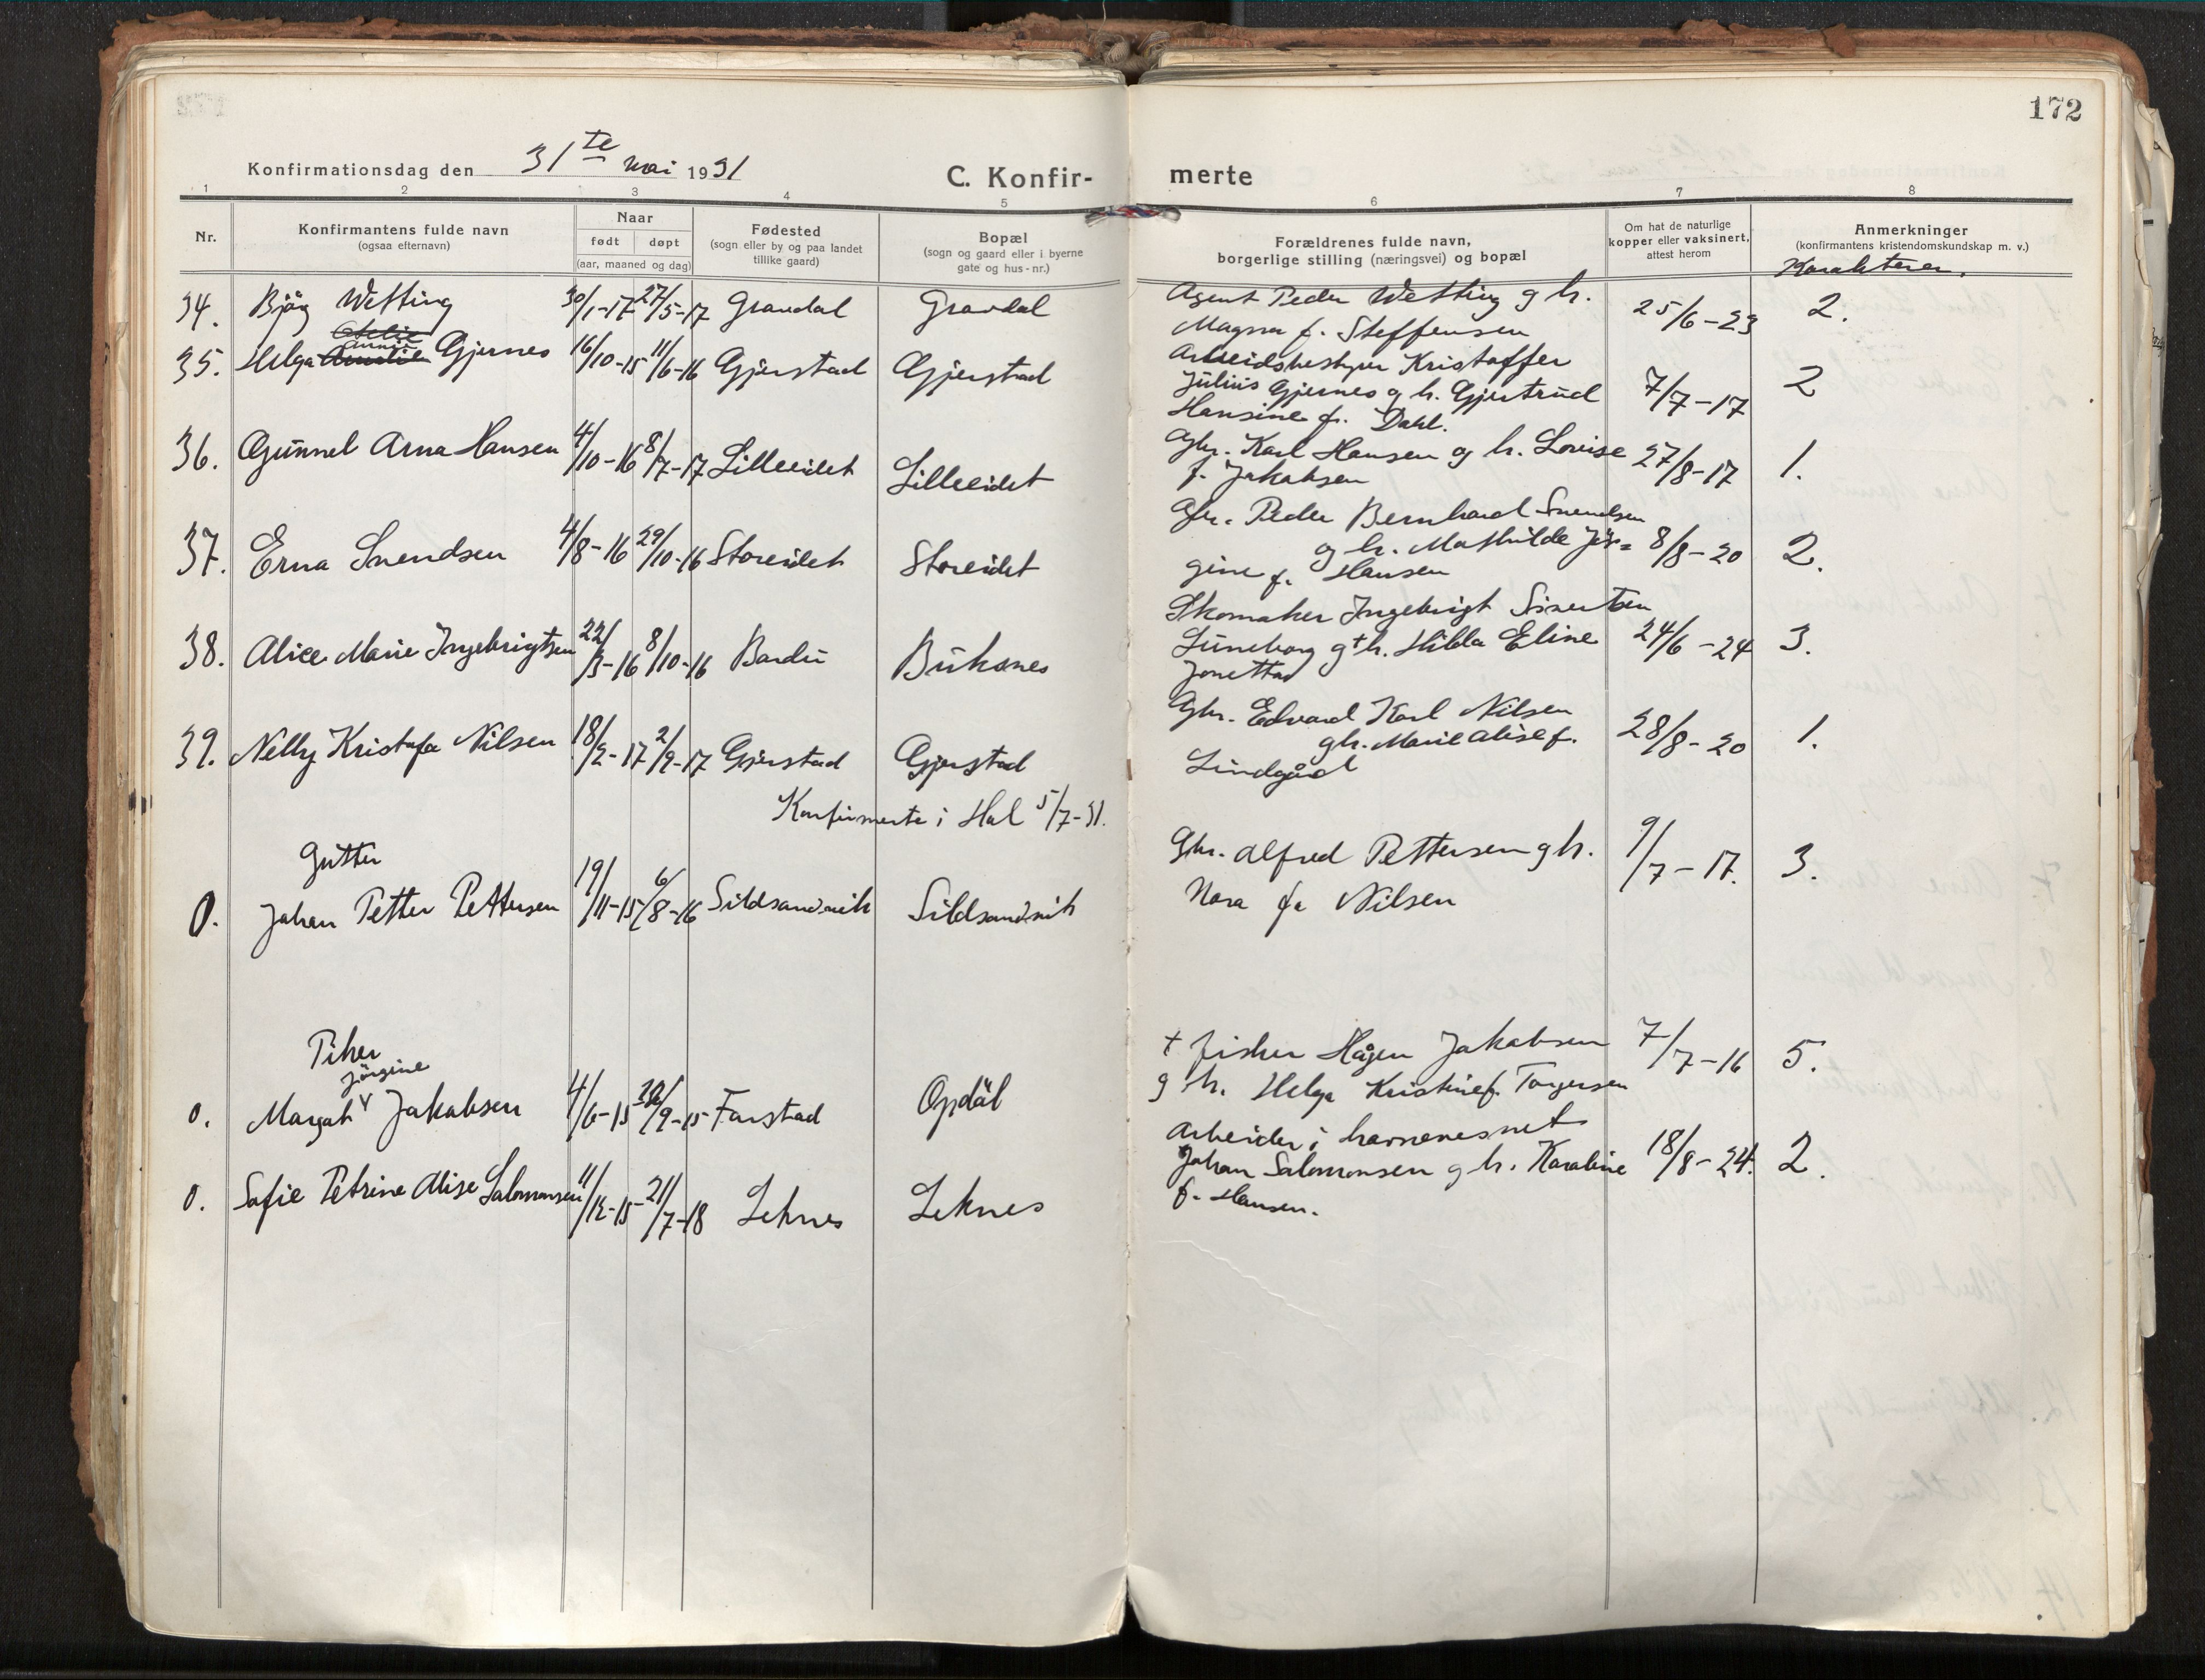 172
Konfirmationsdag den 31te mai 1931
C. Konfir- merte
1 2 3 4 5 6 7 8
Nr.
Konfirmantens fulde navn
(ogsaa efternavn)
Naar
født døpt
(aar, maaned og dag)
Fødested
(sogn eller by og paa landet
tillike gaard)
Bopæl
(sogn og gaard eller i byerne
gate og hus-nr.)
Forældrenes fulde navn,
borgerlige stilling (næringsvei) og bopæl
Om hat de naturlige
kopper eller vaksinert,
attest herom
Anmerkninger
(konfirmantens kristendomskundskap m. v.)
Karakterer.
34. Bjåg Wetting 30/1-17 27/5-17 Gravdal Gravdal Agent Peder Wetting g h. 25/6-23 2.
Magna f. Steffensen
35. Helga Gjernes 16/10-15 11/6-16 Gjerstad Gjerstad Arbeidsbestyrer Kristoffer
Julius Gjernes og h. Gjertrud 7/7-17 2
Hansine f. Dahl.
36. Gunnel Arna Hansen 4/10-16 8/7-17 Lilleeidet Lilleeidet Gbr. Karl Hansen og h. Lovise 27/8-17 1.
f. Jakobsen
37. Erna Svendsen 4/8-16 29/10-16 Storeidet Storeidet Gbr. Peder Bernhard Svendsen
og h. Mathilde Jör= 8/8-20 2.
gine f. Hansen
38. Alice Marie Ingebrigtsen 22/3-16 8/10-16 Bardu Buksnes Skomaker Ingebrigt Sivertsen
Luneborg g + h. Hilda Eline 24/6-24 3.
Jonetta
39. Nelly Kristofa Nilsen 18/2-17 2/9-17 Gjerstad Gjerstad Gbr. Edvard Karl Nilsen
g h. Marie Alise f. 28/8-20 1.
Lindgård
Konfirmerte i Hol 5/7-31.
Gutter
0. Johan Petter Pettersen 19/11-15 6/8-16 Sildsandvik Sildsandvik Gbr. Alfred Pettersen g h. 9/7-17. 3.
Nora f. Nilsen
Piker
Jörgine
0. Margot Jakobsen 4/6-15 /9-15 Farstad Opdöl + fisker Hågen Jakobsen 7/7-16 5.
g h. Helga Kristine f. Torgersen
0. Sofie Petrine Alise Salomonsen 11/12-15 21/7-18 Leknes Leknes Arbeider i havnevesnet
Johan Salomonsen g h. Karoline 18/8-24. 2.
f. Hansen.